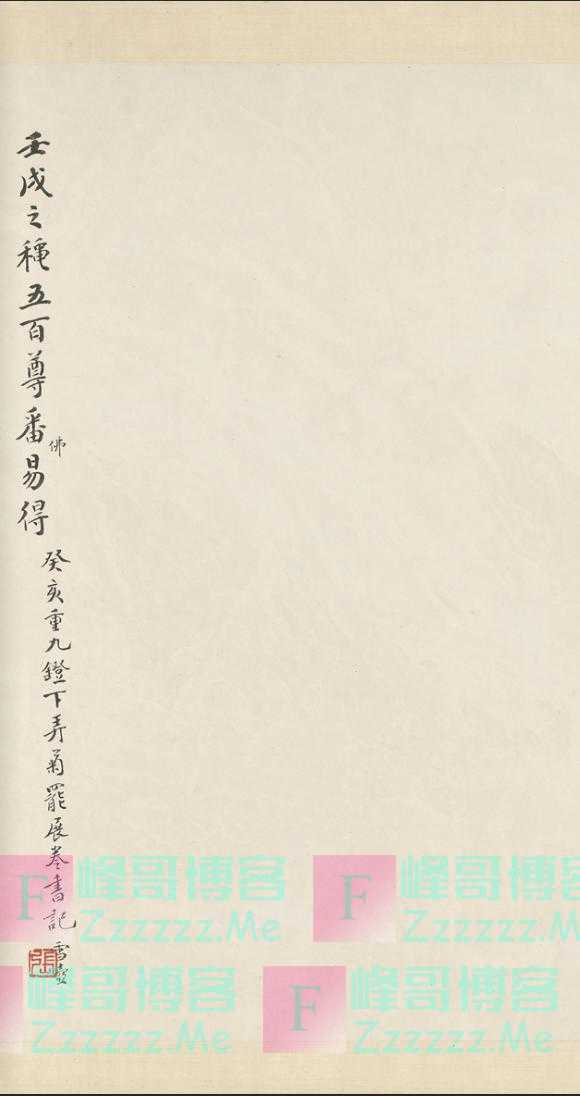 壬戌之穐五百尊番易得
佛
癸亥重九鐙下弄菊罷展卷書記
雪
峰哥博客
Zzzzzz.Me
峰哥博客
Zzzzzz.Me
峰哥博客
Zzzzzz.Me
峰哥博客
Zzzzzz.Me
F
F
F